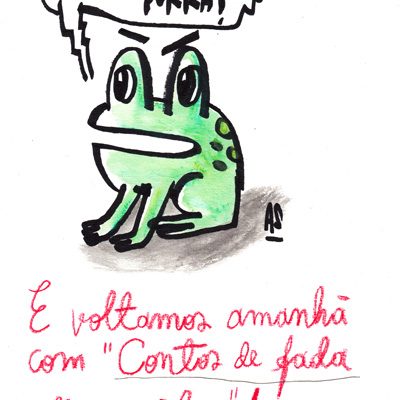 PORRA!
AS
E voltamos amanhã
com "Contos de fada